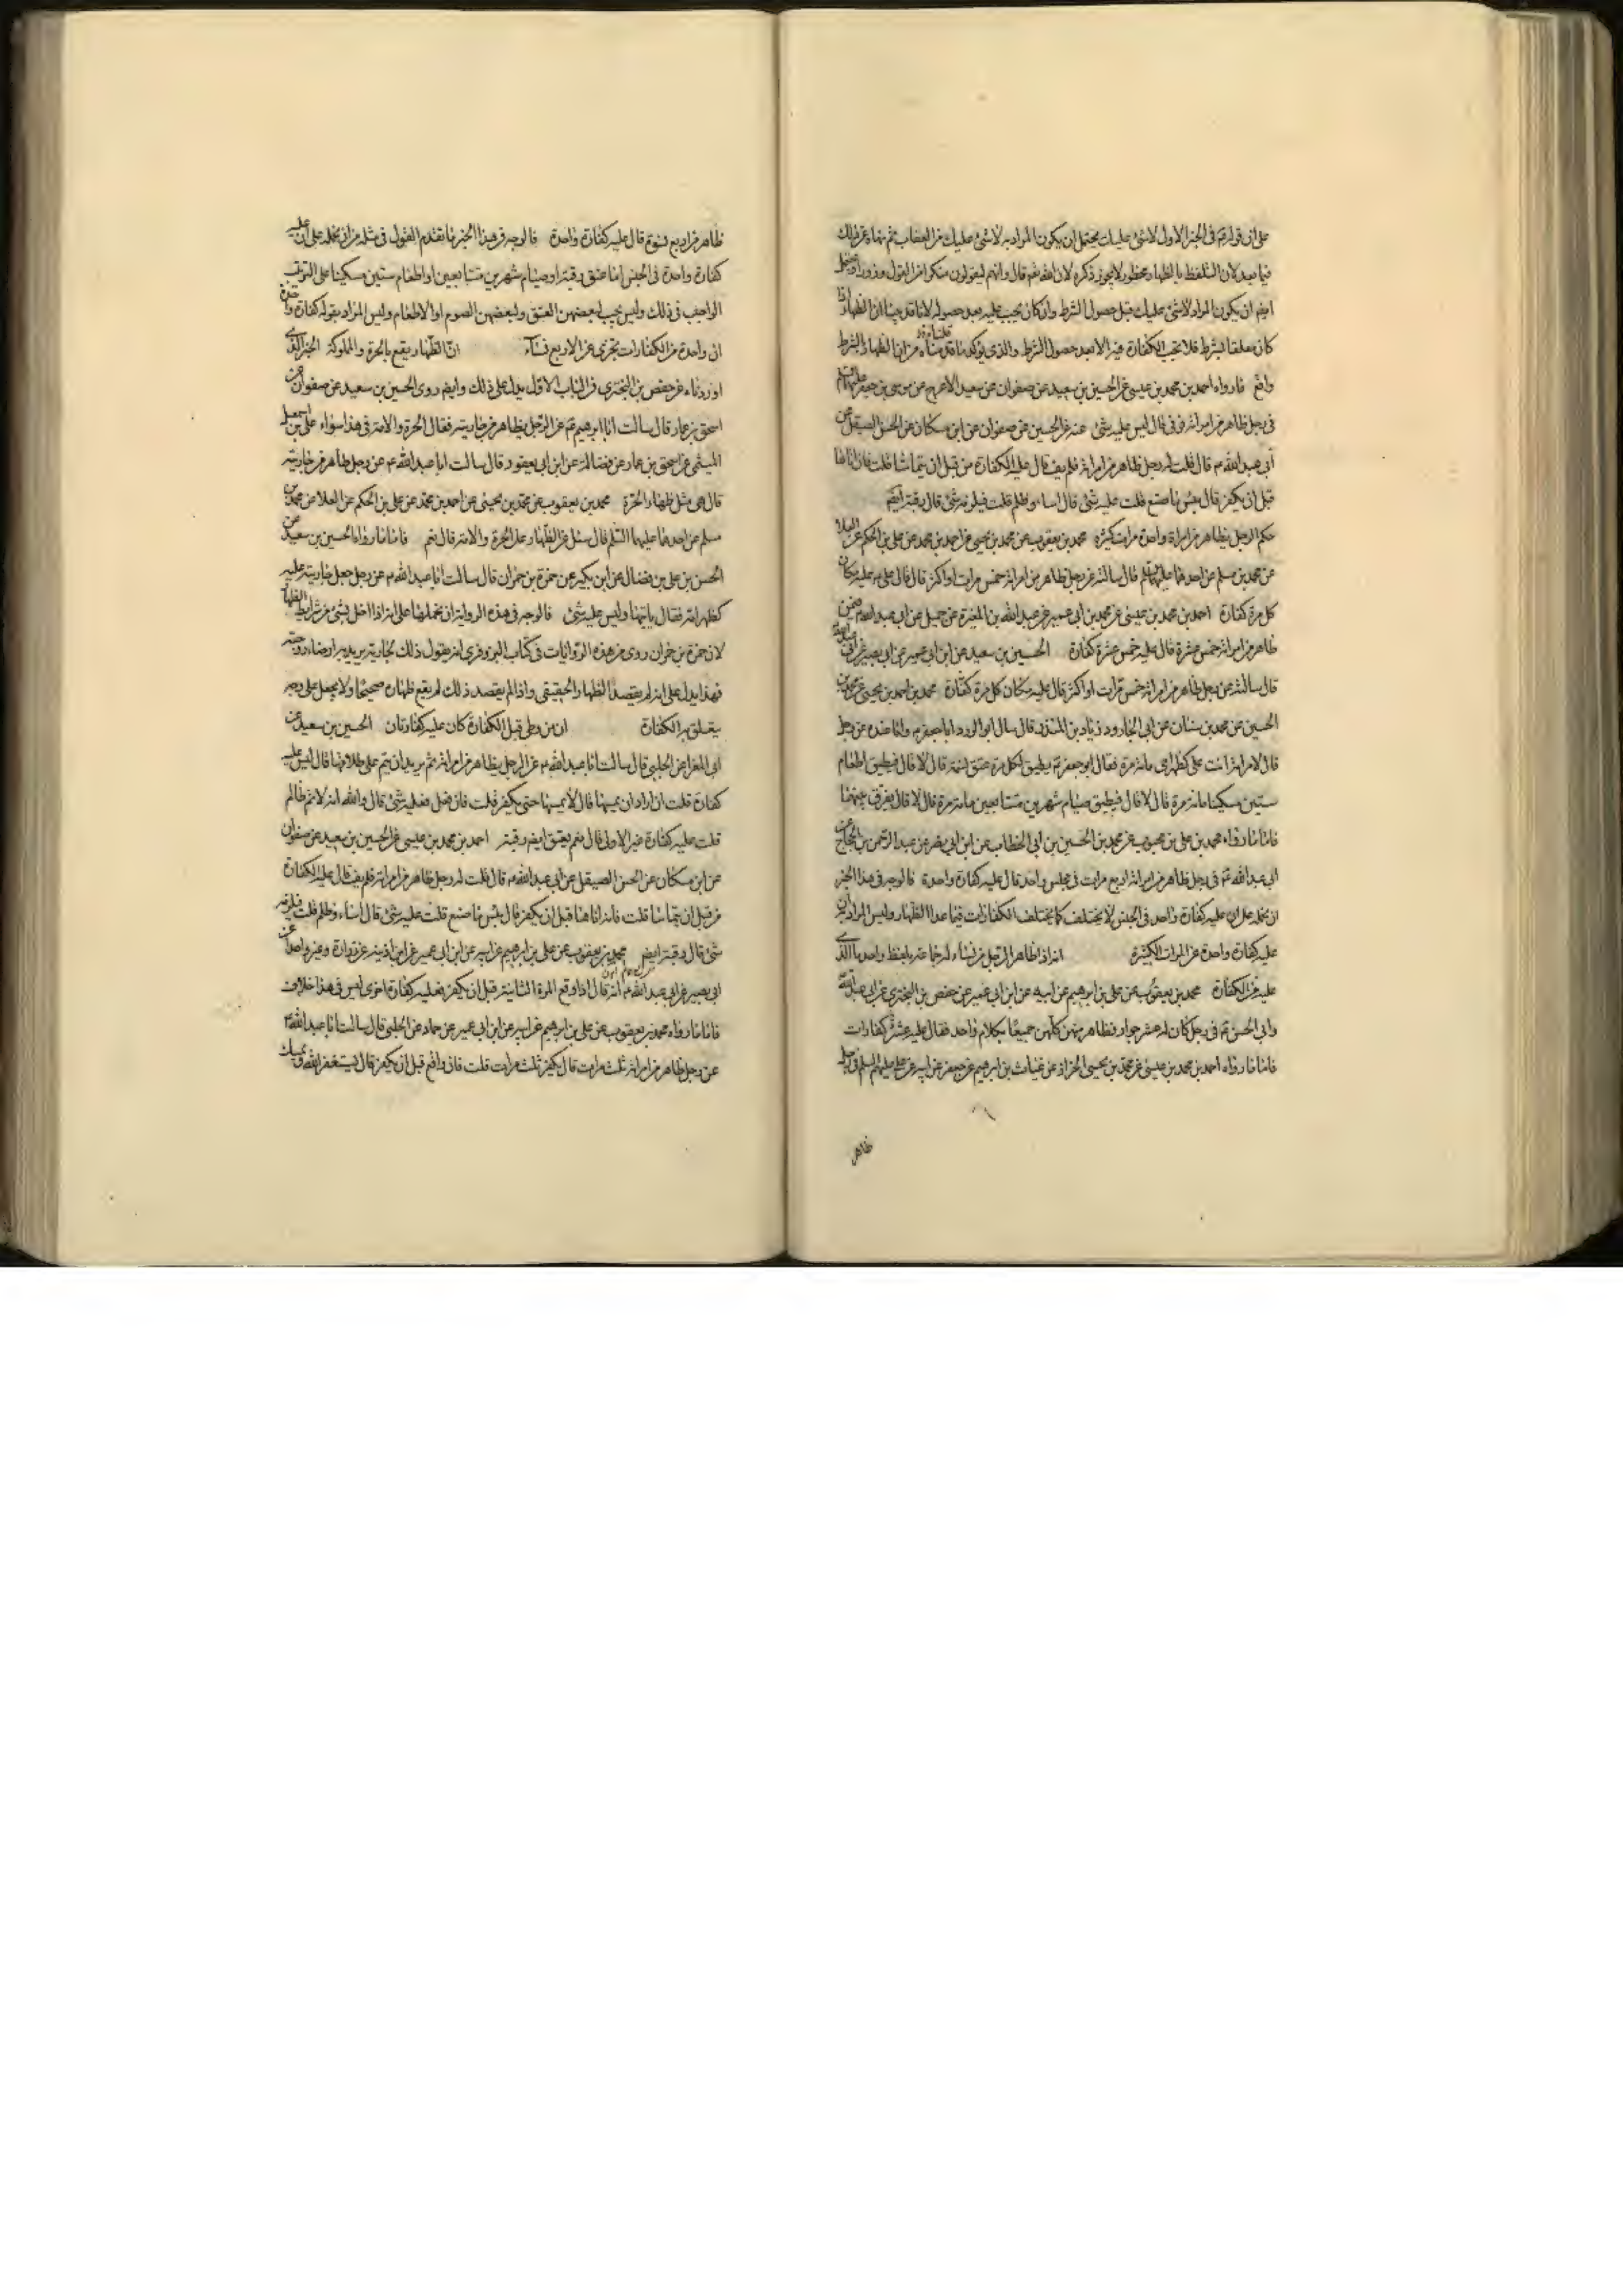 على ان قوله في الخبر الاول لا شئ عليك يحتمل ان يكون المراد به لا شئ عليك من العقاب ثم نهاه عن ذلك
فيما بعد لان التلفظ بالظهار محظور لا يجوز ذكره لان الله تعم قال وانهم ليقولون منكرا من القول وزورا
ايضم ان يكون المراد لا شئ عليك قبل حصول الشرط وان كان يجب عليه بعد حصوله لانا قد بينا ان الظهار اذا
كان معلقا بشرط فلا تجب الكفارة فيه الا بعد حصول الشرط والذي يؤكد ما قدمناه من ان الظهار بالشرط
واقع فارواه احمد بن محمد بن عيسى عن الحسين بن سعيد عن صفوان عن سعيد الاعرج عن موسى بن جعفر عليهما
في رجل ظاهر من امراته فوفى قال ليس عليه شئ عنه عن الحسين عن صفوان عن ابن مسكان عن الحسن الصيقل عن
أبي عبد الله ع قال قلت له رجل ظاهر من امراته فلم يف قال عليه الكفارة من قبل ان يتماسا قلت فان اتاها
قبل ان يكفر قال بئس ما صنع قلت عليه شئ قال اساء وظلم قلت فيلزمه شئ قال رقبة ايضم
حكم الرجل يظاهر من امراة واحدة مرات كثيرة محمد بن يعقوب عن محمد بن يحيى عن احمد بن محمد عن علي بن الحكم عن العلا
عن محمد بن مسلم عن احدهما عليهما قال سالته عن رجل ظاهر من امراته خمس مرات او اكثر قال قال علي ع عليه مكان
كل مرة كفارة احمد بن محمد بن عيسى عن محمد بن أبي عمير عن عبد الله بن المغيرة عن جميل عن ابي عبد الله ع فيمن
ظاهر من امراته خمس عشرة قال عليه خمس عشرة كفارة الحسين بن سعيد عن ابن أبي عمير عن ابي بصير عن أبي
قال سالته عن رجل ظاهر من امراته خمس مرات او اكثر قال عليه مكان كل مرة كفارة محمد بن احمد بن يحيى عن محمد بن
الحسين عن محمد بن سنان عن ابي الجارود زياد بن المنذر قال سال ابو الورد ابا جعفر ع وانا عنده عن رجل
قال لامراته انت علي كظهر امي مائة مرة فقال ابو جعفر ع يطيق لكل مرة عتق نسمة قال لا قال فيطيق اطعام
ستين مسكينا مائة مرة قال لا قال فيطيق صيام شهرين متتابعين مائة مرة قال لا قال يفرق بينهما
فاما ما رواه محمد بن علي بن محبوب عن محمد بن الحسين بن ابي الخطاب عن ابن ابي نصر عن عبد الرحمن بن الحجاج عن
ابي عبد الله ع في رجل ظاهر من امراته اربع مرات في مجلس واحد قال عليه كفارة واحدة فالوجه في هذا الخبر
ان نحمله على ان عليه كفارة واحد في الجنس لا يختلف كما يختلف الكفارات فيما عدا الظهار وليس المراد ان
عليه كفارة واحدة عن المرات الكثيرة انه اذا ظاهر الرجل من نساء له جماعة بلفظ واحد ما الذي
عليه من الكفارة محمد بن يعقوب عن علي بن ابرهيم عن ابيه عن ابن ابي عمير عن حفص بن البختري عن ابي عبد الله
وابي الحسن ع في رجل كان له عشر جوار فظاهر منهن كلهن جميعا بكلام واحد فقال عليه عشر كفارات
فاما ما رواه احمد بن محمد بن عيسى عن محمد بن يحيى الخزاز عن غياث بن ابرهيم عن جعفر عن ابيه عن علي عليهم السلم في رجل
ظاهر
ظاهر من اربع نسوة قال عليه كفارة واحدة فالوجه في هذا الخبر ما تقدم القول في مثله من ان نحمله على ان عليه
كفارة واحدة في الجنس اما عتق رقبة او صيام شهرين متتابعين او اطعام ستين مسكينا على الترتيب
الواجب في ذلك وليس يجب لبعضهن العتق ولبعضهن الصوم او الاطعام وليس المراد بقوله كفارة واحدة
ان واحدة من الكفارات تجزي عن الاربع نساء ان الظهار يقع بالحرة والمملوكة الخبر الذي
اوردناه عن حفص بن البختري في الباب الاول يدل على ذلك وايضم روى الحسين بن سعيد عن صفوان عن
اسحق بن عمار قال سالت ابا ابرهيم ع عن الرجل يظاهر من جاريته فقال الحرة والامة في هذا سواء علي بن اسمعيل
الميثمي عن اسحق بن عمار عن فضالة عن ابن ابي يعفور قال سالت ابا عبد الله ع عن رجل ظاهر من جاريته
قال هي مثل ظهار الحرة محمد بن يعقوب عن محمد بن يحيى عن احمد بن محمد عن علي بن الحكم عن العلا عن محمد بن
مسلم عن احدهما عليهما السلم قال سئل عن الظهار على الحرة والامة قال نعم فاما ما رواه الحسين بن سعيد عن
الحسن بن علي بن فضال عن ابن بكير عن حمزة بن حمران قال سالت ابا عبد الله ع عن رجل جعل جاريته عليه
كظهر امه فقال ياتيها وليس عليه شئ فالوجه في هذه الرواية ان نحملها على انه اذا اخل بشئ من شرايط الظهار
لان حمزة بن حمران روى هذه الروايات في كتاب البزوفري انه يقول ذلك لجاريته يريد به ارضاء زوجته
فهذا يدل على انه لم يقصد الظهار الحقيقي واذا لم يقصد ذلك لم يقع ظهاره صحيحا ولا يحصل على وجه
يتعلق به الكفارة ان من وطى قبل الكفارة كان عليه كفارتان الحسين بن سعيد عن
ابي المغرا عن الحلبي قال سالت ابا عبد الله ع عن الرجل يظاهر من امراته ثم يريد ان يتم على طلاقها قال ليس عليه
كفارة قلت ان اراد ان يمسها قال لا يمسها حتى يكفر قلت فان فعل فعليه شئ قال والله انه لاثم ظالم
قلت عليه كفارة غير الاولى قال نعم يعتق ايضم رقبة احمد بن محمد بن عيسى عن الحسين بن سعيد عن صفوان
عن ابن مسكان عن الحسن الصيقل عن ابي عبد الله ع قال قلت له رجل ظاهر من امراته فلم يف قال عليه الكفارة
من قبل ان يتماسا قلت فانه اتاها قبل ان يكفر قال بئس ما صنع قلت عليه شئ قال اساء وظلم قلت فيلزمه
شئ قال رقبة ايضم محمد بن يعقوب عن علي بن ابرهيم عن ابيه عن ابن ابي عمير عن ابن اذينة عن زرارة وغير واحد عن
ابي بصير عن ابي عبد الله ع انه قال اذا وقع المرة الثانية قبل ان يكفر فعليه كفارة اخرى ليس في هذا خلاف
فاما ما رواه محمد بن يعقوب عن علي بن ابرهيم عن ابيه عن ابن ابي عمير عن حماد عن الحلبي قال سالت ابا عبد الله ع
عن رجل ظاهر من امراته ثلث مرات قال يكفر ثلث مرات قلت فان واقع قبل ان يكفر قال يستغفر الله ويمسك